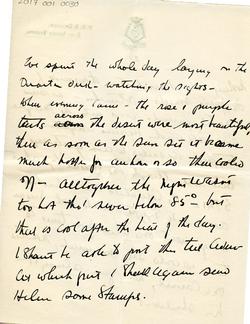 2017 001 0030
We spent the whole day laying in the
watching the
When evening came - the rose & purple
tints across the desert were most beautiful
then as soon as the sun set it became
much hotter for an hour or so then cooled
off - altogether the night wasn't
too hot tho' never below 85° - but
that is cool after the heat of the day.
I shan't be able to post this till Aden
at which port I shall again send
Helen some stamps.